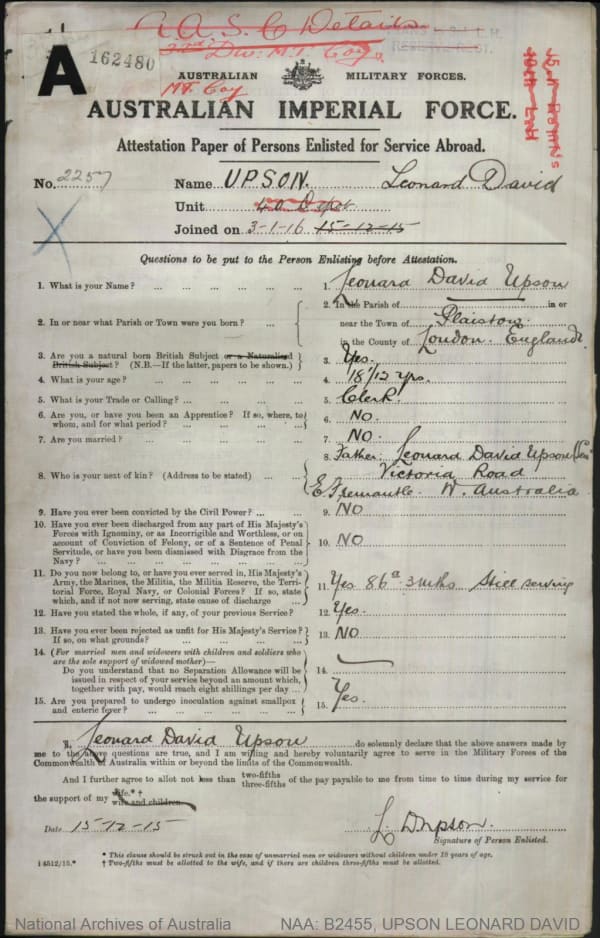 A.A.S.C Details
2nd Div: M.T. Coy
A
162480
AUSTRALIAN MILITARY FORCES.
M.T. Coy
AUSTRALIAN IMPERIAL FORCE.
Attestation Paper of Persons Enlisted for Service Abroad.
No. 2257 Name UPSON. Leonard David
Unit 40 Depot
Joined on 3-1-16 15-12-15
Questions to be put to the Person Enlisting before Attestation.
1. What is your Name? 1. Leonard David Upson
2. In or near what Parish or Town were you born? 2. In the Parish of in or
near the Town of Plaistow
in the County of London England
3. Are you a natural born British Subject or a Naturalised
British Subject? (N.B.—If the latter, papers to be shown.) 3. Yes.
4. What is your age? 4. 18 1/12 yrs.
5. What is your Trade or Calling? 5. Clerk
6. Are you, or have you been an Apprentice? If so, where, to
whom, and for what period? 6. NO.
7. Are you married? 7. NO.
8. Who is your next of kin? (Address to be stated) 8. Father: Leonard David Upson (Sen)
Victoria Road
E. Fremantle. W. Australia
9. Have you ever been convicted by the Civil Power? 9. NO
10. Have you ever been discharged from any part of His Majesty's
Forces with Ignominy, or as Incorrigible and Worthless, or on
account of Conviction of Felony, or of a Sentence of Penal
Servitude, or have you been dismissed with Disgrace from the
Navy? 10. NO
11. Do you now belong to, or have you ever served in, His Majesty's
Army, the Marines, the Militia, the Militia Reserve, the Terri-
torial Force, Royal Navy, or Colonial Forces? If so, state
which, and if not now serving, state cause of discharge 11. Yes 86a 3 mths Still serving
12. Have you stated the whole, if any, of your previous Service? 12. Yes.
13. Have you ever been rejected as unfit for His Majesty's Service?
If so, on what grounds? 13. NO
14. (For married men and widowers with children and soldiers who
are the sole support of widowed mother)—
Do you understand that no Separation Allowance will be
issued in respect of your service beyond an amount which,
together with pay, would reach eight shillings per day 14.
15. Are you prepared to undergo inoculation against smallpox
and enteric fever? 15. Yes.
I, Leonard David Upson do solemnly declare that the above answers made by
me to the above questions are true, and I am willing and hereby voluntarily agree to serve in the Military Forces of the
Commonwealth of Australia within or beyond the limits of the Commonwealth.
And I further agree to allot not less than two-fifths three-fifths of the pay payable to me from time to time during my service for
the support of my wife.*†
wife and children
Date 15-12-15 L. D Upson.
Signature of Person Enlisted.
* This clause should be struck out in the case of unmarried men or widowers without children under 18 years of age.
† Two-fifths must be allotted to the wife, and if there are children three-fifths must be allotted.
National Archives of Australia NAA: B2455, UPSON LEONARD DAVID